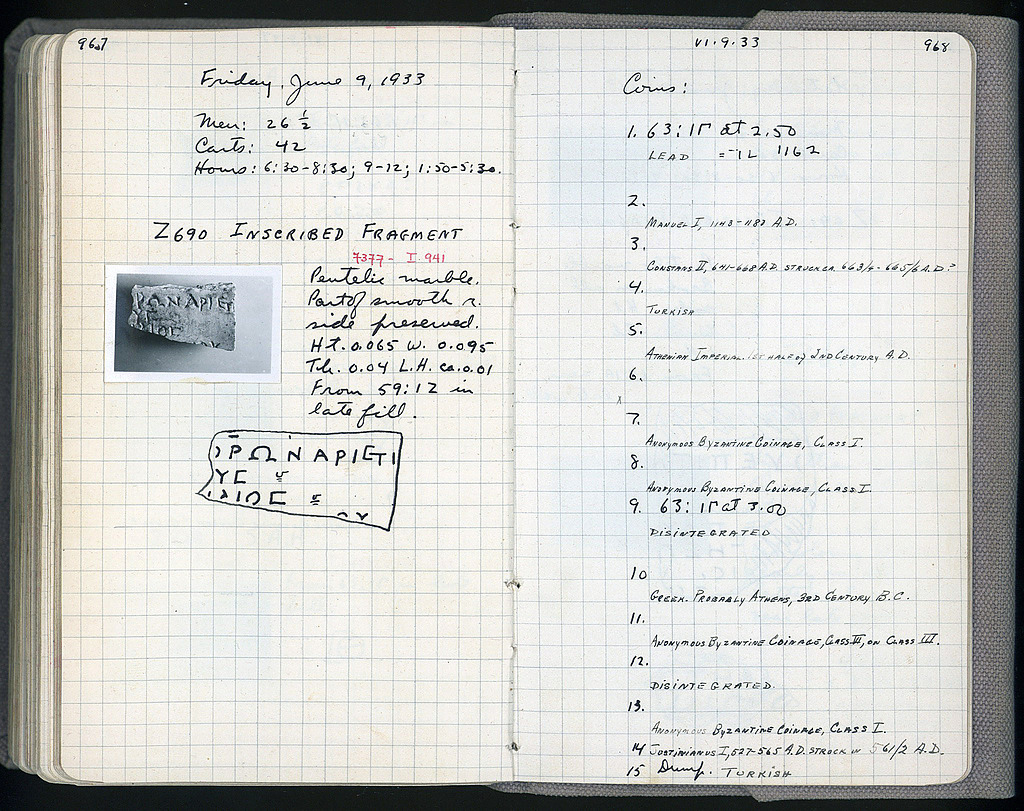 967
Friday, June 9, 1933
Men: 26 ½
Carts: 42
Hours: 6:30-8:30; 9-12; 1:30-5:30.
Z690 INSCRIBED FRAGMENT
7377- I. 941
Pentelic marble.
Part of smooth r.
side preserved.
Ht. 0.065 W. 0.095
Th. 0.04 L.H. ca. 0.01
From 59:12 in
late fill.
ΡΩΝΑΡΙΕΤΙ
ΥΕ
ΙΛΙΟΕ
VI.9.33
968
Coins:
1. 63:ΙΓ at 2.50
LEAD = IL 1162
2.
MANUEL I, 1143-1180 A.D.
3.
CONSTANS II, 641-668 A.D. STRUCK CA. 663/4-665/6 A.D.?
4.
TURKISH
5.
ATHENIAN IMPERIAL. 1ST HALF OF 2ND CENTURY A.D.
6.
x
7.
ANONYMOUS BYZANTINE COINAGE, CLASS I.
8.
ANONYMOUS BYZANTINE COINAGE, CLASS I.
9. 63:ΙΓ at 3.00
DISINTEGRATED
10
GREEK. PROBABLY ATHENS, 3RD CENTURY B.C.
11.
ANONYMOUS BYZANTINE COINAGE, CLASS III, ON CLASS III.
12.
DISINTEGRATED.
13.
ANONYMOUS BYZANTINE COINAGE, CLASS I.
14 JUSTINIANUS I, 527-565 A.D. STRUCK IN 561/2 A.D.
15 Dump. TURKISH